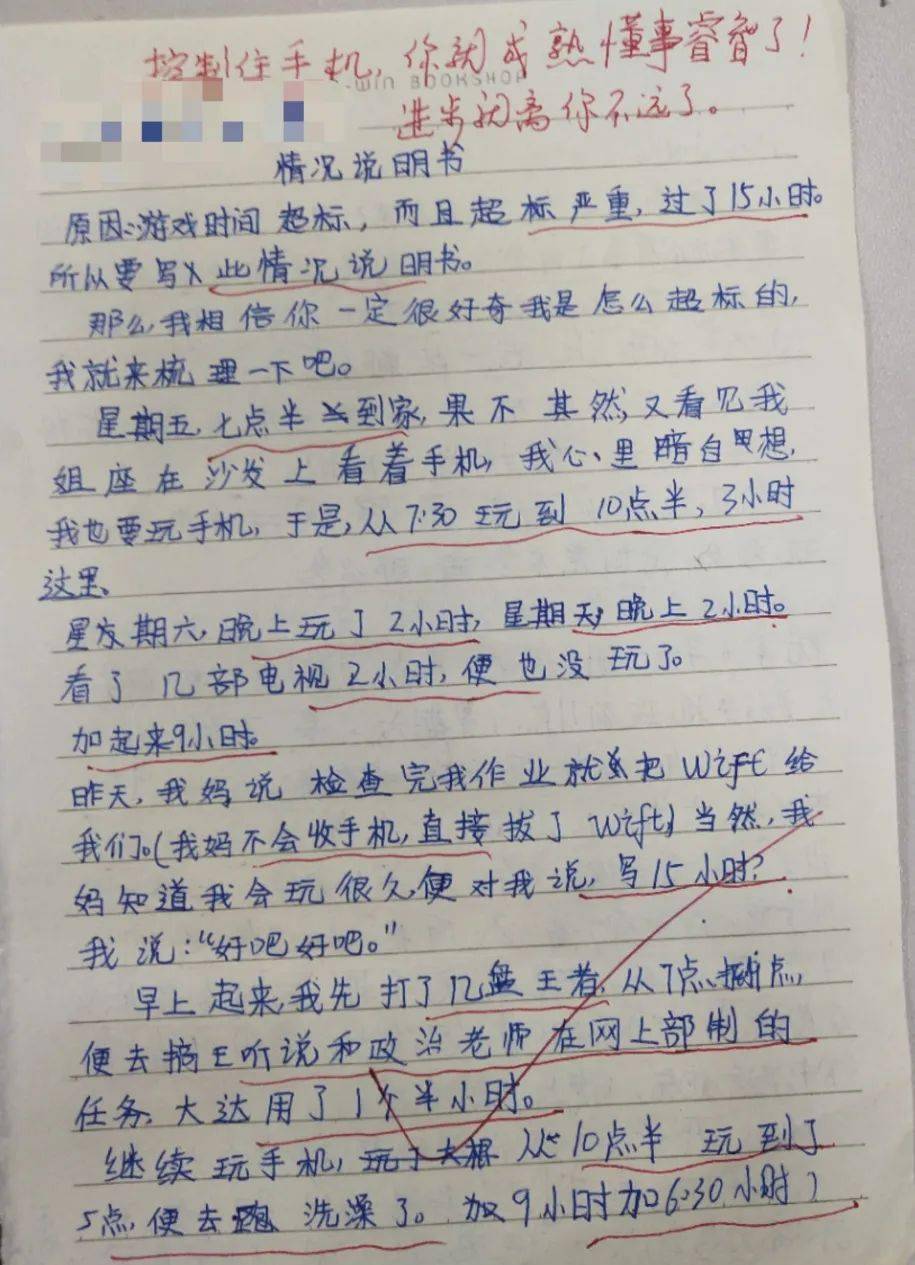 控制住手机，你就成熟懂事睿智了！
WIN BOOKSHOP
进步就离你不远了。
情况说明书
原因：游戏时间超标，而且超标严重，过了15小时。
所以要写此情况说明书。
那么，我相信你一定很好奇我是怎么超标的，
我就来梳理一下吧。
星期五，七点半到家，果不其然，又看见我
姐座在沙发上看着手机，我心里暗自思想，
我也要玩手机，于是，从7:30玩到10点半，3小时
这里。
星期六，晚上玩了2小时，星期天，晚上2小时。
看了几部电视2小时，便也没玩了。
加起来9小时。
昨天，我妈说检查完我作业就把Wift给
我们。(我妈不会收手机，直接拔了Wift)当然，我
妈知道我会玩很久，便对我说，写15小时？
我说：“好吧好吧。”
早上起来，我先打了几盘王者，从7点 点，
便去搞王听说和政治老师在网上部制的
任务，大达用了1个半小时。
继续玩手机，从10点半玩到了
5点，便去洗澡了。加9小时加6:30小时）